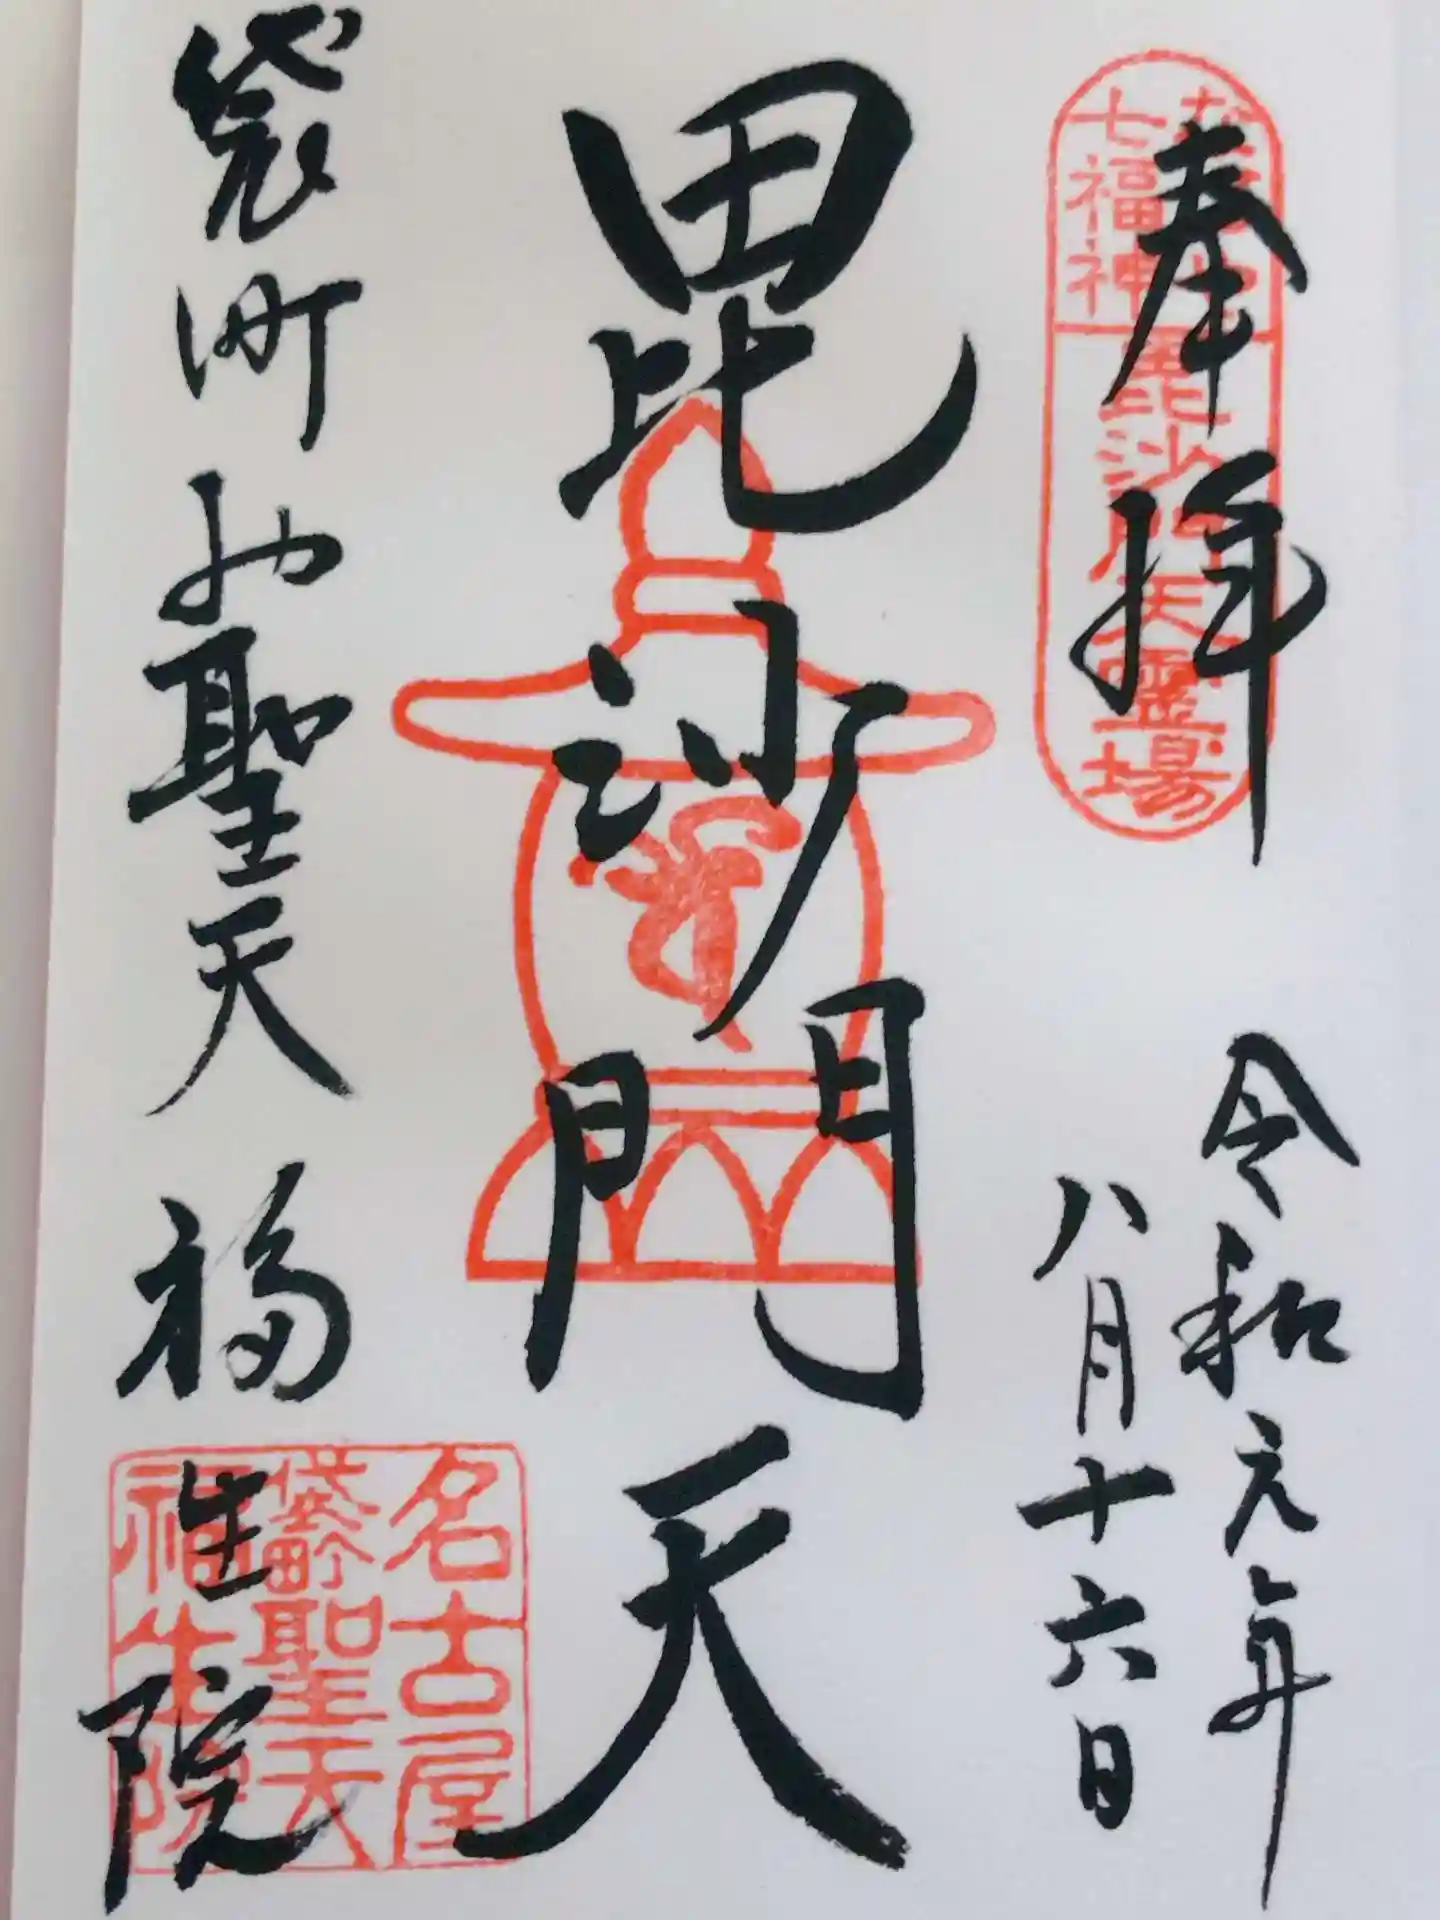 奉拝
なごや
七福神
毘沙門天霊場
令和元年
八月十六日
毘沙門天
袋町お聖天
福生院
名古屋
袋町聖天
福生院